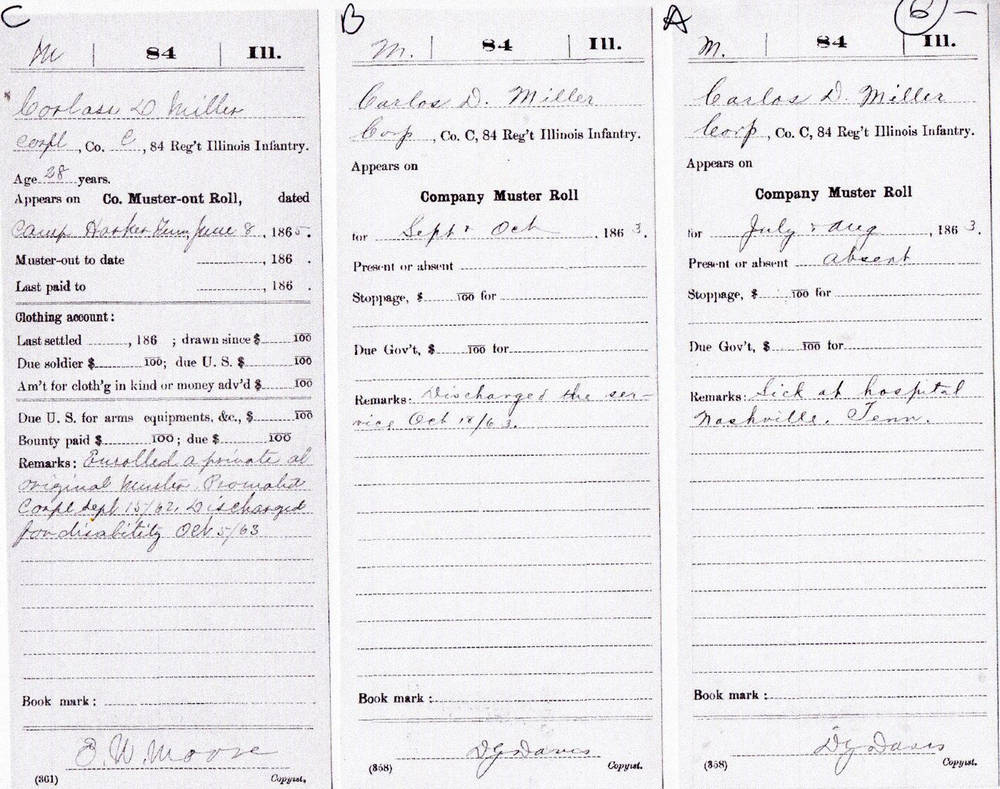 C
M | 84 | Ill.
Corlass D Miller
Corpl, Co. C, 84 Reg't Illinois Infantry.
Age 28 years.
Appears on Co. Muster-out Roll, dated
Camp Harker Tenn June 8, 1865.
Muster-out to date ............, 186 .
Last paid to ............, 186 .
Clothing account:
Last settled ......, 186 ; drawn since $...... 100
Due soldier $...... 100; due U. S. $...... 100
Am't for cloth'g in kind or money adv'd $...... 100
Due U. S. for arms equipments, &c., $...... 100
Bounty paid $...... 100; due $...... 100
Remarks: Enrolled a private at
original muster. Promoted
Corpl Sept 15/62. Discharged
for disability Oct 5/63
Book mark:
E. W. Moore
(361) Copyist.
B
M. | 84 | Ill.
Carlos D. Miller
Corp, Co. C, 84 Reg't Illinois Infantry.
Appears on
Company Muster Roll
for Sept & Oct, 1863.
Present or absent
Stoppage, $...... 100 for
Due Gov't, $...... 100 for
Remarks: Discharged the ser-
vice Oct 18/63.
Book mark:
DG Davis
(358) Copyist.
A
6 -
M. | 84 | Ill.
Carlos D. Miller
Corp, Co. C, 84 Reg't Illinois Infantry.
Appears on
Company Muster Roll
for July & Aug, 1863.
Present or absent absent
Stoppage, $...... 100 for
Due Gov't, $...... 100 for
Remarks: Sick at hospital
Nashville, Tenn.
Book mark:
DG Davis
(358) Copyist.